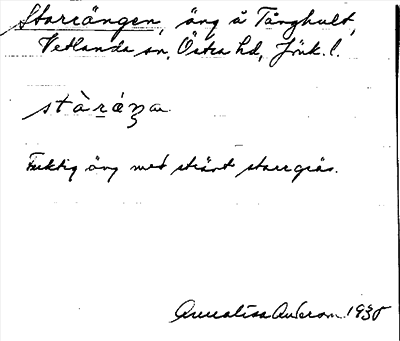 Starrängen, äng å Tånghult,
Vetlanda sn, Östra hd, Jönk. l.
stàráŋa
Fuktig äng med strävt starrgräs.
Annalisa Anderson 1930